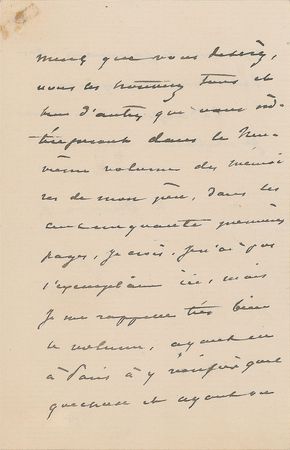 ments que vous désirez,
vous les trouverez tous et
bien d'autres qui vous
dans le neu-
vième volume des mémoi-
res de mon père, dans les
cinquante premières
pages, je crois. Je n'ai pas
l'exemplaire ici, mais
je me rappelle très bien
ce volume, ayant eu
à Paris à y vérifier quel
que chose et ayant eu